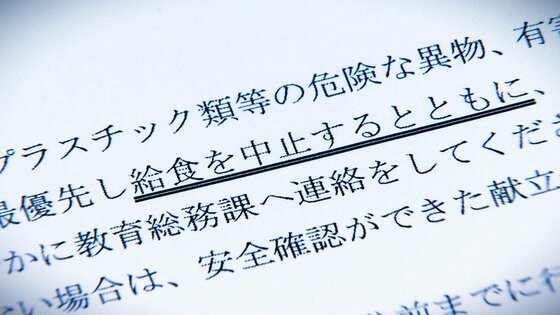 プラスチック類等の危険な異物、有
最優先し給食を中止するとともに、
かに教育総務課へ連絡をしてくださ
い場合は、安全確認ができた献立
前までに行